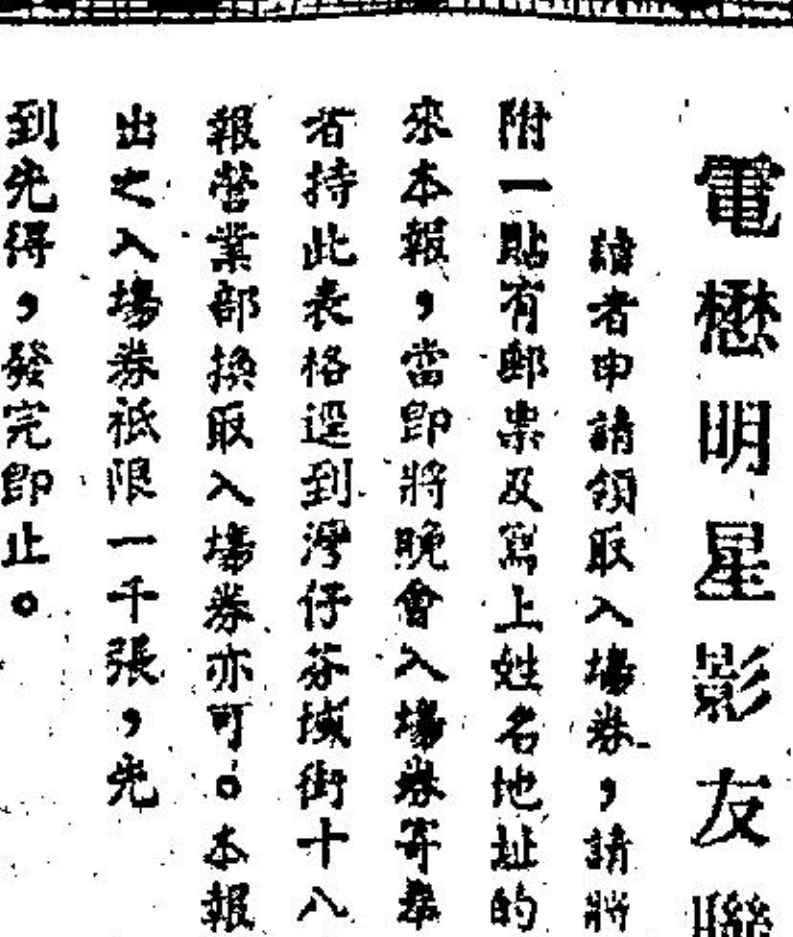 電懋明星影友聯
讀者申請領取入場券，請將
附一貼有郵票及寫上姓名地址的
來本報，當即將晚會入場券寄奉
者持此表格逕到灣仔芬域街十八
報營業部換取入場券亦可。本報
出之入場券祗限一千張，先
到先得，發完即止。